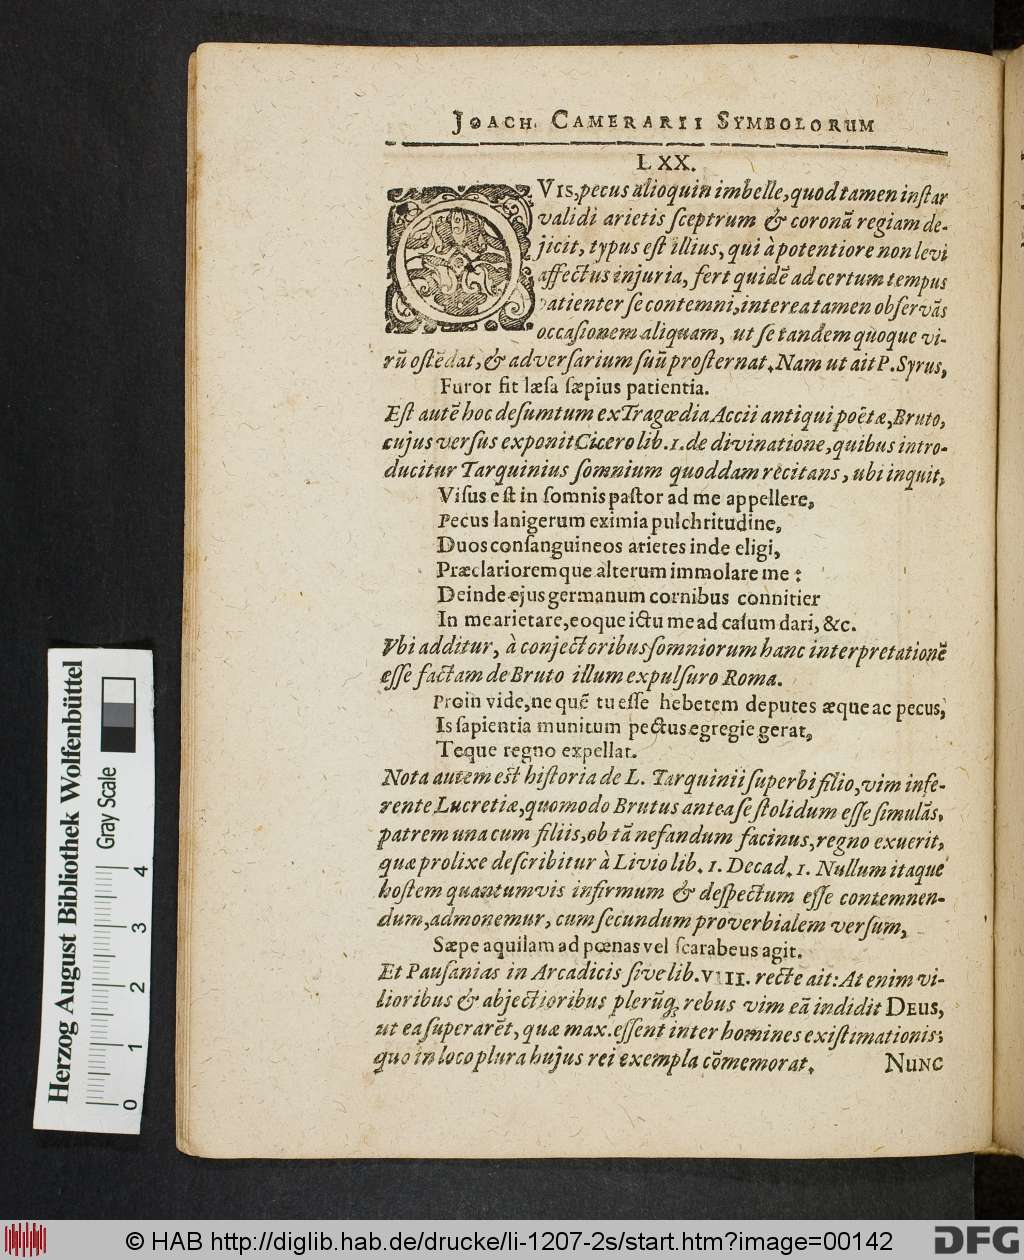 JOACH. CAMERARII SYMBOLORUM
LXX.
OVIS, pecus alioquin imbelle, quod tamen inſtar
validi arietis ſceptrum & coronā regiam de-
jicit, typus eſt illius, qui à potentiore non levi
affectus injuria, fert quidē ad certum tempus
patienter ſe contemni, interea tamen obſervās
occaſionem aliquam, ut ſe tandem quoque vi-
rū oſtēdat, & adverſarium ſuū proſternat. Nam ut ait P. Syrus,
Furor fit læſa ſæpius patientia.
Eſt autē hoc deſumtum ex Tragœdia Accii antiqui poëtæ, Bruto,
cujus verſus exponit Cicero lib. 1. de divinatione, quibus intro-
ducitur Tarquinius ſomnium quoddam recitans, ubi inquit,
Viſus eſt in ſomnis paſtor ad me appellere,
Pecus lanigerum eximia pulchritudine,
Duos conſanguineos arietes inde eligi,
Præclarioremque alterum immolare me:
Deinde ejus germanum cornibus connitier
In me arietare, eoque ictu me ad caſum dari, &c.
Vbi additur, à conjectoribus ſomniorum hanc interpretationē
eſſe factam de Bruto illum expulſuro Roma.
Proin vide, ne quē tu eſſe hebetem deputes æque ac pecus,
Is ſapientia munitum pectus egregie gerat,
Teque regno expellat.
Nota autem eſt hiſtoria de L. Tarquinii ſuperbi filio, vim infe-
rente Lucretiæ, quomodo Brutus antea ſe ſtolidum eſſe ſimulās,
patrem una cum filiis, ob tā nefandum facinus, regno exuerit,
quæ prolixe deſcribitur à Livio lib. 1. Decad. 1. Nullum itaque
hoſtem quantumvis infirmum & deſpectum eſſe contemnen-
dum, admonemur, cum ſecundum proverbialem verſum,
Sæpe aquilam ad pœnas vel ſcarabeus agit.
Et Pauſanias in Arcadicis ſive lib. VIII. recte ait: At enim vi-
lioribus & abjectioribus plerūq; rebus vim eā indidit DEUS,
ut ea ſuperarēt, quæ max. eſſent inter homines exiſtimationis;
quo in loco plura hujus rei exempla cōmemorat.
NUNC
Herzog August Bibliothek Wolfenbüttel
Gray Scale
0 1 2 3 4
© HAB http://diglib.hab.de/drucke/li-1207-2s/start.htm?image=00142
DFG